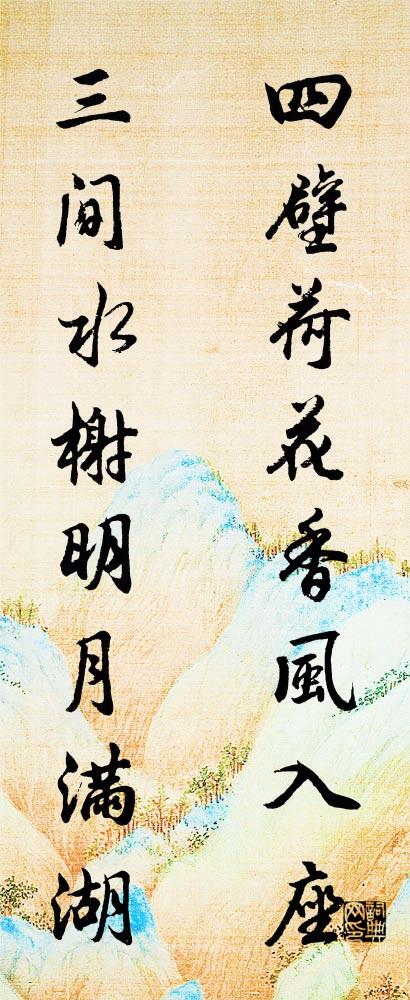 四壁荷花香風入座
三间水榭明月满湖
詞典网印